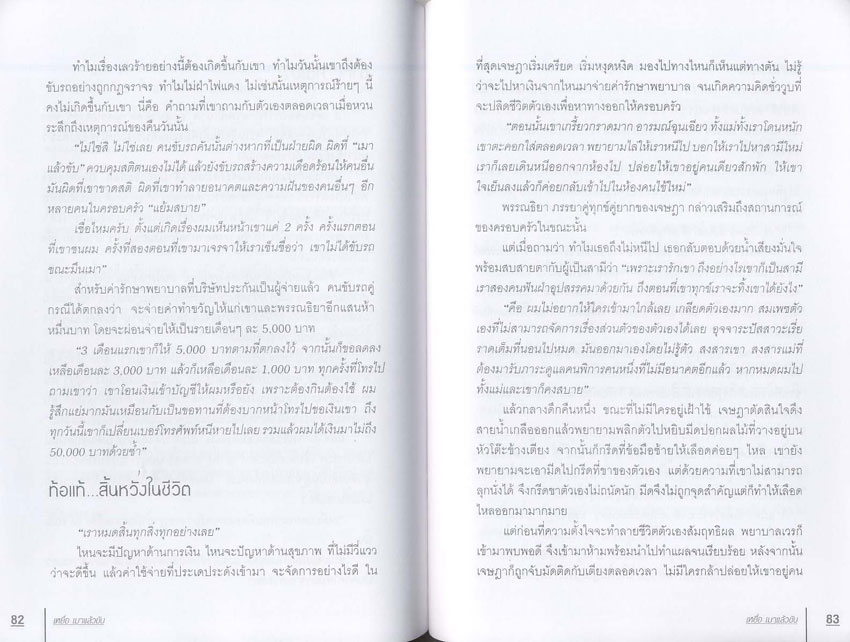 ทำไมเรื่องเลวร้ายอย่างนี้ต้องเกิดขึ้นกับเขา ทำไมวันนั้นเขาถึงต้อง
ขับรถอย่างถูกกฎจราจร ทำไมไม่ฝ่าไฟแดง ไม่เช่นนั้นเหตุการณ์ร้ายๆ นี้
คงไม่เกิดขึ้นกับเขา นี่คือ คำถามที่เขาถามกับตัวเองตลอดเวลาเมื่อหวน
ระลึกถึงเหตุการณ์ของคืนวันนั้น
“ไม่ใช่สิ ไม่ใช่เลย คนขับรถคันนั้นต่างหากที่เป็นฝ่ายผิด ผิดที่ “เมา
แล้วขับ” ควบคุมสติตนเองไม่ได้ แล้วยังขับรถสร้างความเดือดร้อนให้คนอื่น
มันผิดที่เขาขาดสติ ผิดที่เขาทำลายอนาคตและความฝันของคนอื่นๆ อีก
หลายคนในครอบครัว “แย้มสบาย”
เชื่อไหมครับ ตั้งแต่เกิดเรื่องผมเห็นหน้าเขาแค่ 2 ครั้ง ครั้งแรกตอน
ที่เขาชนผม ครั้งที่สองตอนที่เขามาเจรจาให้เราเซ็นชื่อว่า เขาไม่ได้ขับรถ
ขณะมึนเมา”
สำหรับค่ารักษาพยาบาลที่บริษัทประกันเป็นผู้จ่ายแล้ว คนขับรถคู่
กรณีได้ตกลงว่า จะจ่ายค่าทำขวัญให้แก่เขาและพรรณธิยาอีกแสนห้า
หมื่นบาท โดยจะผ่อนจ่ายให้เป็นรายเดือนๆ ละ 5,000 บาท
“3 เดือนแรกเขาก็ให้ 5,000 บาทตามที่ตกลงไว้ จากนั้นก็ขอลดลง
เหลือเดือนละ 3,000 บาท แล้วก็เหลือเดือนละ 1,000 บาท ทุกครั้งที่โทรไป
ถามเขาว่า เขาโอนเงินเข้าบัญชีให้ผมหรือยัง เพราะต้องกินต้องใช้ ผม
รู้สึกแย่มากมันเหมือนกับเป็นขอทานที่ต้องบากหน้าโทรไปขอเงินเขา ถึง
ทุกวันนี้เขาก็เปลี่ยนเบอร์โทรศัพท์หนีหายไปเลย รวมแล้วผมได้เงินมาไม่ถึง
50,000 บาทด้วยซ้ำ”
ท้อแท้...สิ้นหวังในชีวิต
“เราหมดสิ้นทุกสิ่งทุกอย่างเลย”
ไหนจะมีปัญหาด้านการเงิน ไหนจะปัญหาด้านสุขภาพ ที่ไม่มีวี่แวว
ว่าจะดีขึ้น แล้วค่าใช้จ่ายที่ประเดประดังเข้ามา จะจัดการอย่างไรดี ใน
82 เหยื่อ เมาแล้วขับ
ที่สุดเจษฎาเริ่มเครียด เริ่มหงุดหงิด มองไปทางไหนก็เห็นแต่ทางตัน ไม่รู้
ว่าจะไปหาเงินจากไหนมาจ่ายค่ารักษาพยาบาล จนเกิดความคิดชั่ววูบที่
จะปลิดชีวิตตัวเองเพื่อหาทางออกให้ครอบครัว
“ตอนนั้นเขาเกรี้ยวกราดมาก อารมณ์ฉุนเฉียว ทั้งแม่ทั้งเราโดนหนัก
เขาตะคอกใส่ตลอดเวลา พยายามไล่ให้เราหนีไป บอกให้เราไปหาสามีใหม่
เราก็เลยเดินหนีออกจากห้องไป ปล่อยให้เขาอยู่คนเดียวสักพัก ให้เขา
ใจเย็นลงแล้วก็ค่อยกลับเข้าไปในห้องคนไข้ใหม่”
พรรณธิยา ภรรยาคู่ทุกข์คู่ยากของเจษฎา กล่าวเสริมถึงสถานการณ์
ของครอบครัวในขณะนั้น
แต่เมื่อถามว่า ทำไมเธอถึงไม่หนีไป เธอกลับตอบด้วยน้ำเสียงมั่นใจ
พร้อมสบสายตากับผู้เป็นสามีว่า “เพราะเรารักเขา ถึงอย่างไรเขาก็เป็นสามี
เราสองคนฟันฝ่าอุปสรรคมาด้วยกัน ถึงตอนที่เขาทุกข์เราจะทิ้งเขาได้ยังไง”
“คือ ผมไม่อยากให้ใครเข้ามาใกล้เลย เกลียดตัวเองมาก สมเพชตัว
เองที่ไม่สามารถจัดการเรื่องส่วนตัวของตัวเองได้เลย อุจจาระปัสสาวะเรี่ย
ราดเต็มที่นอนไปหมด มันออกมาเองโดยไม่รู้ตัว สงสารเขา สงสารแม่ที่
ต้องมารับภาระดูแลคนพิการคนหนึ่งที่ไม่มีอนาคตอีกแล้ว หากหมดผมไป
ทั้งแม่และเขาก็คงสบาย”
แล้วกลางดึกคืนหนึ่ง ขณะที่ไม่มีใครอยู่เฝ้าไข้ เจษฎาตัดสินใจดึง
สายน้ำเกลือออกแล้วพยายามพลิกตัวไปหยิบมีดปอกผลไม้ที่วางอยู่บน
หัวโต๊ะข้างเตียง จากนั้นก็กรีดที่ข้อมือซ้ายให้เลือดค่อยๆ ไหล เขายัง
พยายามจะเอามีดไปกรีดที่ขาของตัวเอง แต่ด้วยความที่เขาไม่สามารถ
ลุกนั่งได้ จึงกรีดขาตัวเองไม่ถนัดนัก มีดจึงไม่ถูกจุดสำคัญแต่ก็ทำให้เลือด
ไหลออกมามากมาย
แต่ก่อนที่ความตั้งใจจะทำลายชีวิตตัวเองสัมฤทธิผล พยาบาลเวรก็
เข้ามาพบพอดี จึงเข้ามาห้ามพร้อมนำไปทำแผลจนเรียบร้อย หลังจากนั้น
เจษฎาก็ถูกจับมัดติดกับเตียงตลอดเวลา ไม่มีใครกล้าปล่อยให้เขาอยู่คน
เหยื่อ เมาแล้วขับ 83